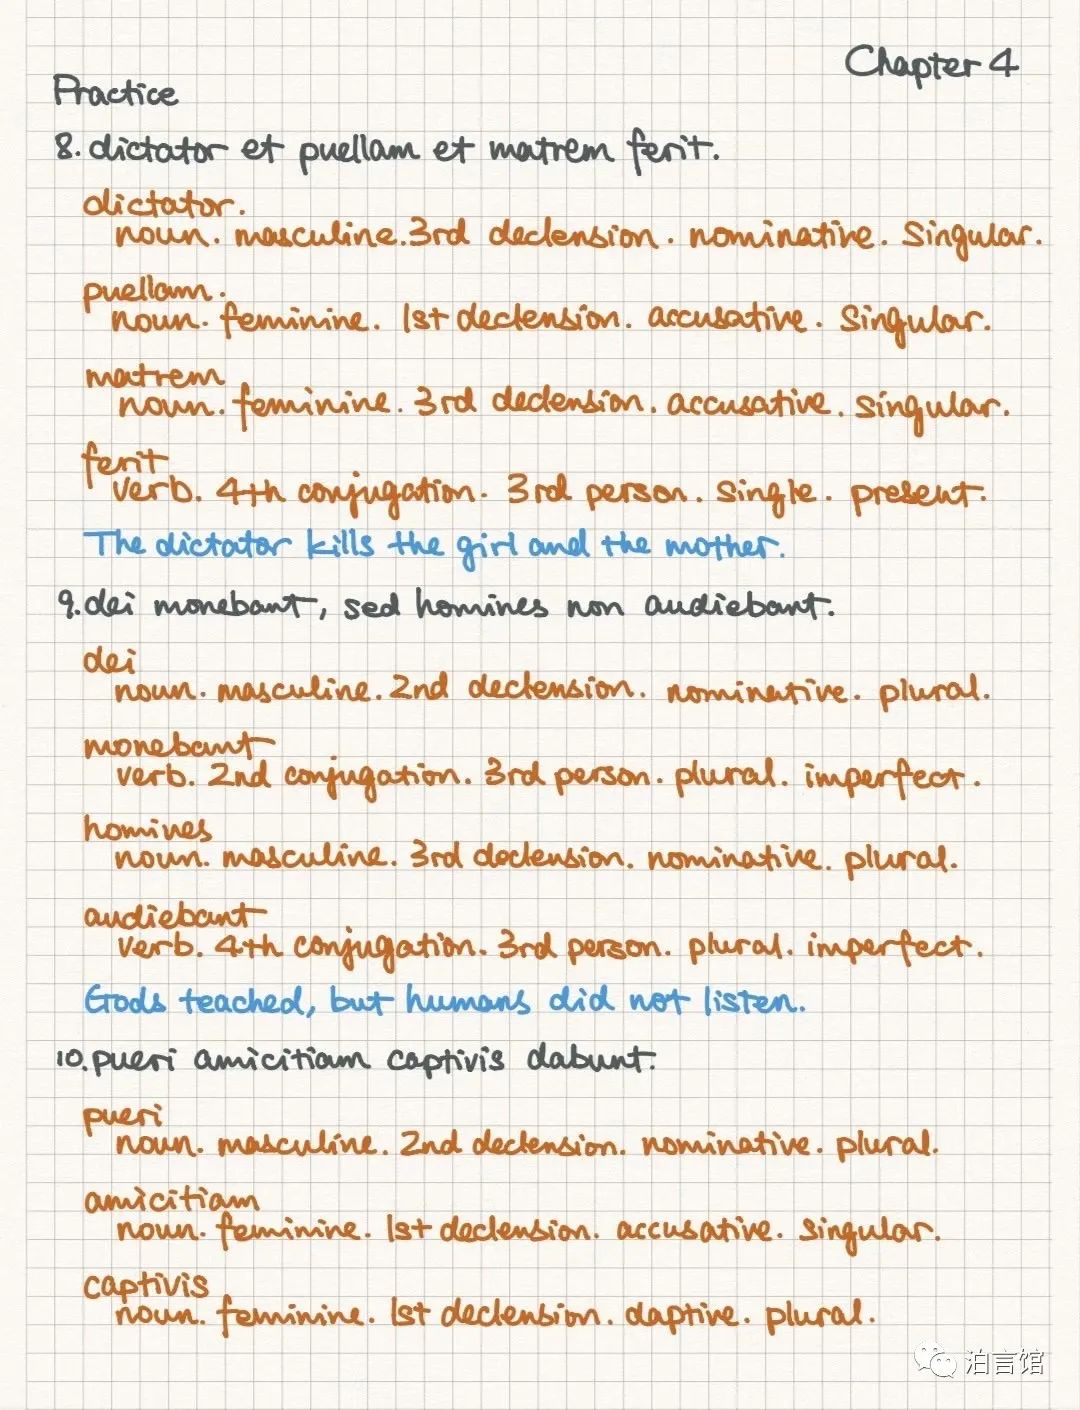 Chapter 4
Practice
8. dictator et puellam et matrem ferit.
dictator.
noun. masculine. 3rd declension. nominative. Singular.
puellam.
noun. feminine. 1st declension. accusative. Singular.
matrem
noun. feminine. 3rd declension. accusative. singular.
ferit
verb. 4th conjugation. 3rd person. single. present.
The dictator kills the girl and the mother.
9. dei monebant, sed homines non audiebant.
dei
noun. masculine. 2nd declension. nominative. plural.
monebant
verb. 2nd conjugation. 3rd person. plural. imperfect.
homines
noun. masculine. 3rd declension. nominative. plural.
audiebant
verb. 4th conjugation. 3rd person. plural. imperfect.
Gods teached, but humans did not listen.
10. pueri amicitiam captivis dabunt.
pueri
noun. masculine. 2nd declension. nominative. plural.
amicitiam
noun. feminine. 1st declension. accusative. singular.
captivis
noun. feminine. 1st declension. daptive. plural.
泊言馆